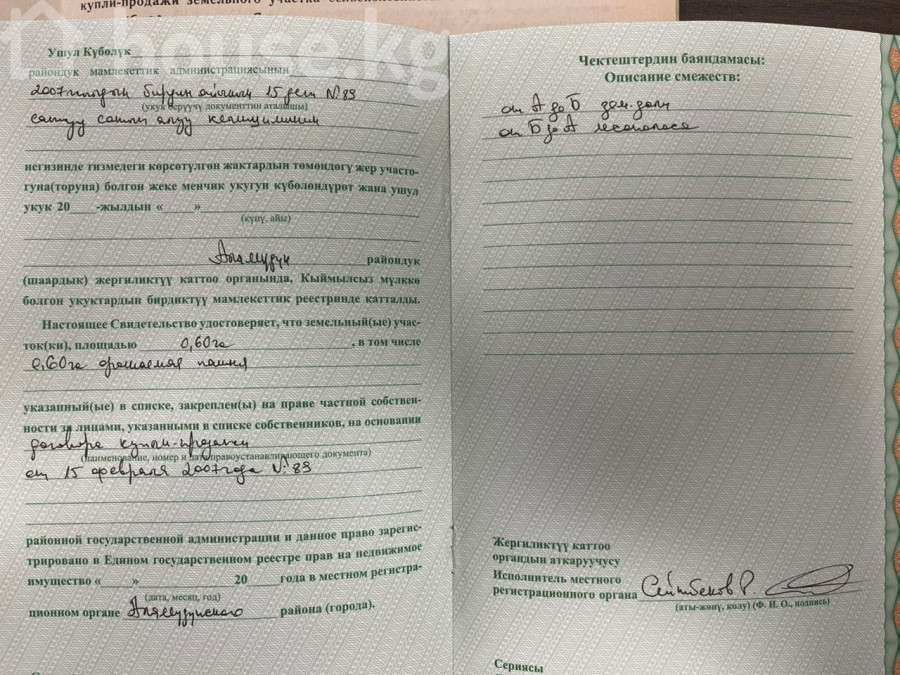 купли-продажи земельного участка
house.kg
Ушул Күбөлүк
райондук мамлекеттик администрациясынын
2007-жылдын бирдин айынын 15 деги № 89
(укук берүүчү документтин аталышы)
сатуу сатып алуу келишиминин
негизинде тизмедеги көрсөтүлгөн жактардын төмөндөгү жер участо-
гуна(торуна) болгон жеке менчик укугун күбөлөндүрөт жана ушул
укук 20 -жылдын « »
(күнү, айы)
Аламүдүн райондук
(шаардык) жергиликтүү каттоо органында, Кыймылсыз мүлккө
болгон укуктардын бирдиктүү мамлекеттик реестринде катталды.
Настоящее Свидетельство удостоверяет, что земельный(ые) учас-
ток(ки), площадью 0,60га , в том числе
0,60га орошаемая пашня
указанный(ые) в списке, закреплен(ы) на праве частной собствен-
ности за лицами, указанными в списке собственников, на основании
договора купли-продажи
(наименование, номер и дата правоустанавливающего документа)
от 15 февраля 2007года № 89
районной государственной администрации и данное право зарегис-
трировано в Едином государственном реестре прав на недвижимое
имущество « » 20 года в местном регистра-
(дата, месяц, год)
ционном органе Аламудунского района (города).
Чектештердин баяндамасы:
Описание смежеств:
от А до Б зем. доли
от Б до А лесополоса
Жергиликтүү каттоо
органдын аткаруучусу
Исполнитель местного
регистрационного органа Сейтбеков Р.
(аты-жөнү, колу) (Ф. И. О., подпись)
Сериясы